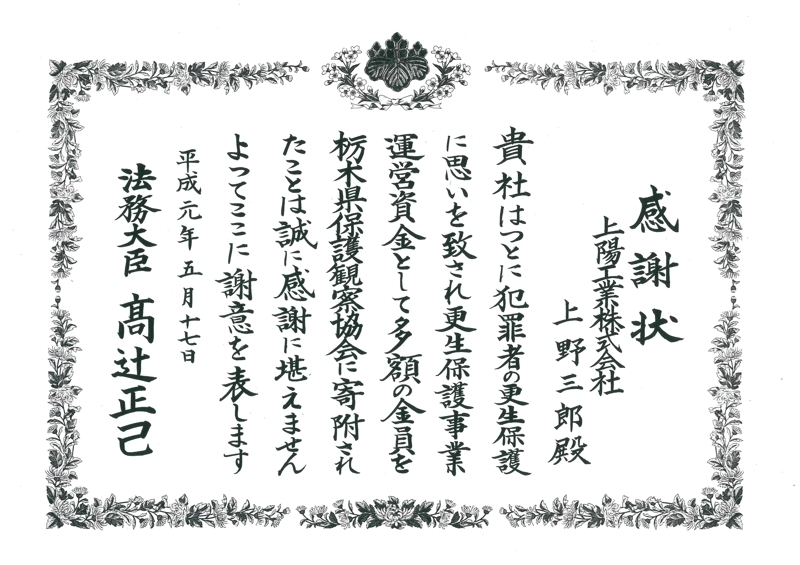 感謝状
上陽工業株式会社
上野三郎殿
貴社はつとに犯罪者の更生保護
に思いを致され更生保護事業
運営資金として多額の金員を
栃木県保護観察協会に寄附され
たことは誠に感謝に堪えません
よってここに謝意を表します
平成元年五月十七日
法務大臣 髙辻正己